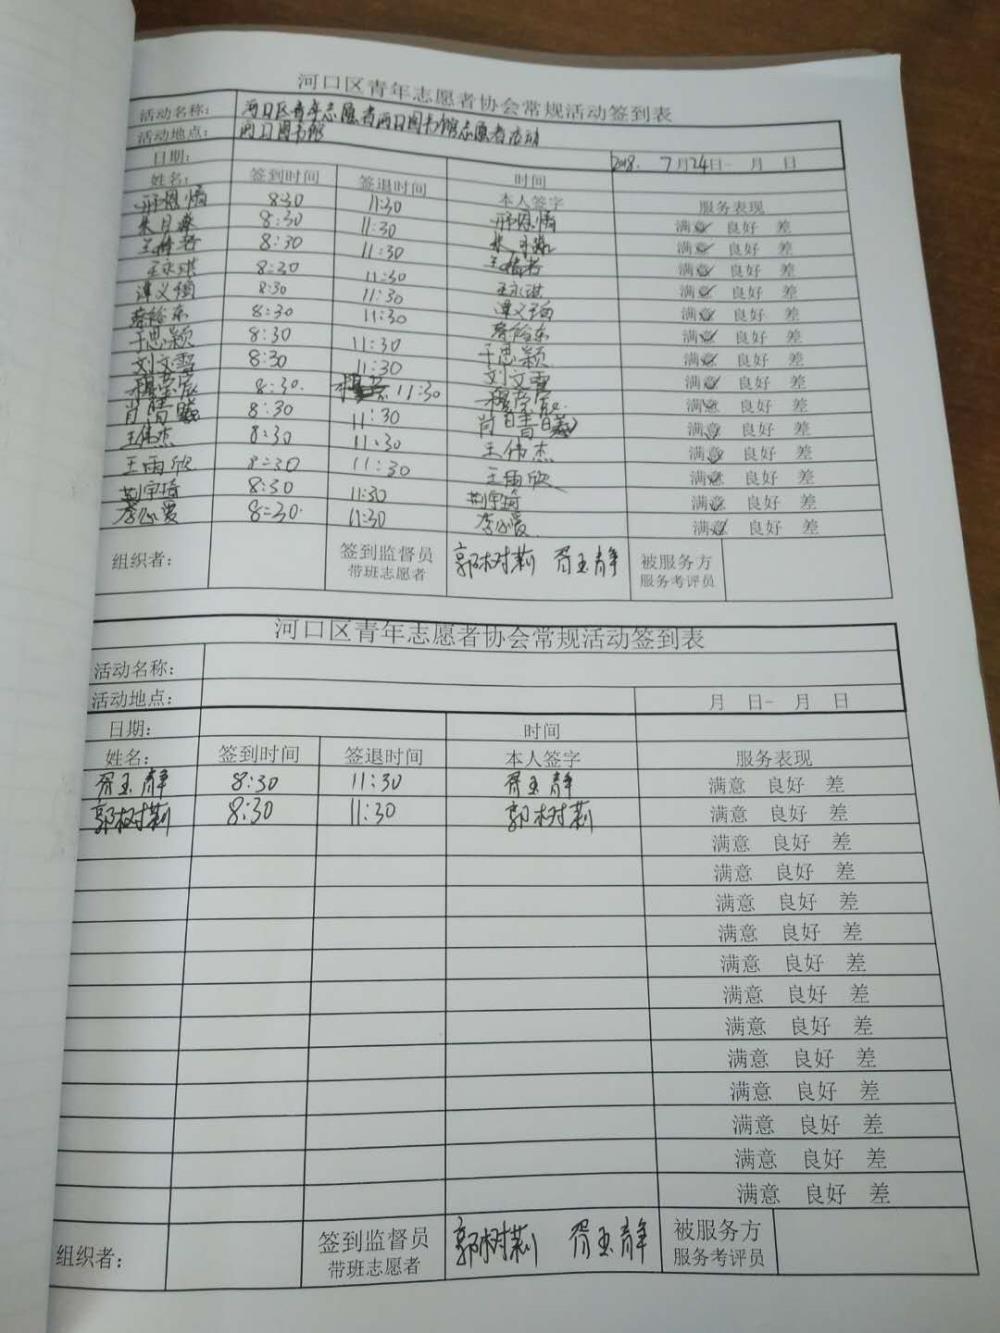 河口区青年志愿者协会常规活动签到表
活动名称: 河口区青年志愿者河口图书馆志愿者活动
活动地点: 河口图书馆
日期: 时间 2018. 7月24日- 月 日
姓名: 签到时间 签退时间 本人签字 服务表现
邢恩惛 8:30 11:30 邢恩惛 满意 良好 差
朱月 8:30 11:30 朱月 满意 良好 差
王 8:30 11:30 王 满意 良好 差
王永琪 8:30 11:30 王永琪 满意 良好 差
谭义 8:30 11:30 谭义 满意 良好 差
8:30 11:30 满意 良好 差
于思颖 8:30 11:30 于思颖 满意 良好 差
刘文雪 8:30 11:30 刘文雪 满意 良好 差
穆荣宸 8:30. 11:30 穆荣宸 满意 良好 差
肖晴曦 8:30 11:30 肖晴曦 满意 良好 差
王伟杰 8:30 11:30 王伟杰 满意 良好 差
王雨欣 8:30 11:30 王雨欣 满意 良好 差
荆宇琦 8:30 11:30 荆宇琦 满意 良好 差
李心爱 8:30. 11:30 李心爱 满意 良好 差
组织者: 签到监督员 郭树莉 胥玉静 被服务方
带班志愿者 服务考评员
河口区青年志愿者协会常规活动签到表
活动名称:
活动地点: 月 日- 月 日
日期: 时间
姓名: 签到时间 签退时间 本人签字 服务表现
胥玉静 8:30 11:30 胥玉静 满意 良好 差
郭树莉 8:30 11:30 郭树莉 满意 良好 差
满意 良好 差
满意 良好 差
满意 良好 差
满意 良好 差
满意 良好 差
满意 良好 差
满意 良好 差
满意 良好 差
满意 良好 差
满意 良好 差
满意 良好 差
满意 良好 差
组织者: 签到监督员 郭树莉 胥玉静 被服务方
带班志愿者 服务考评员